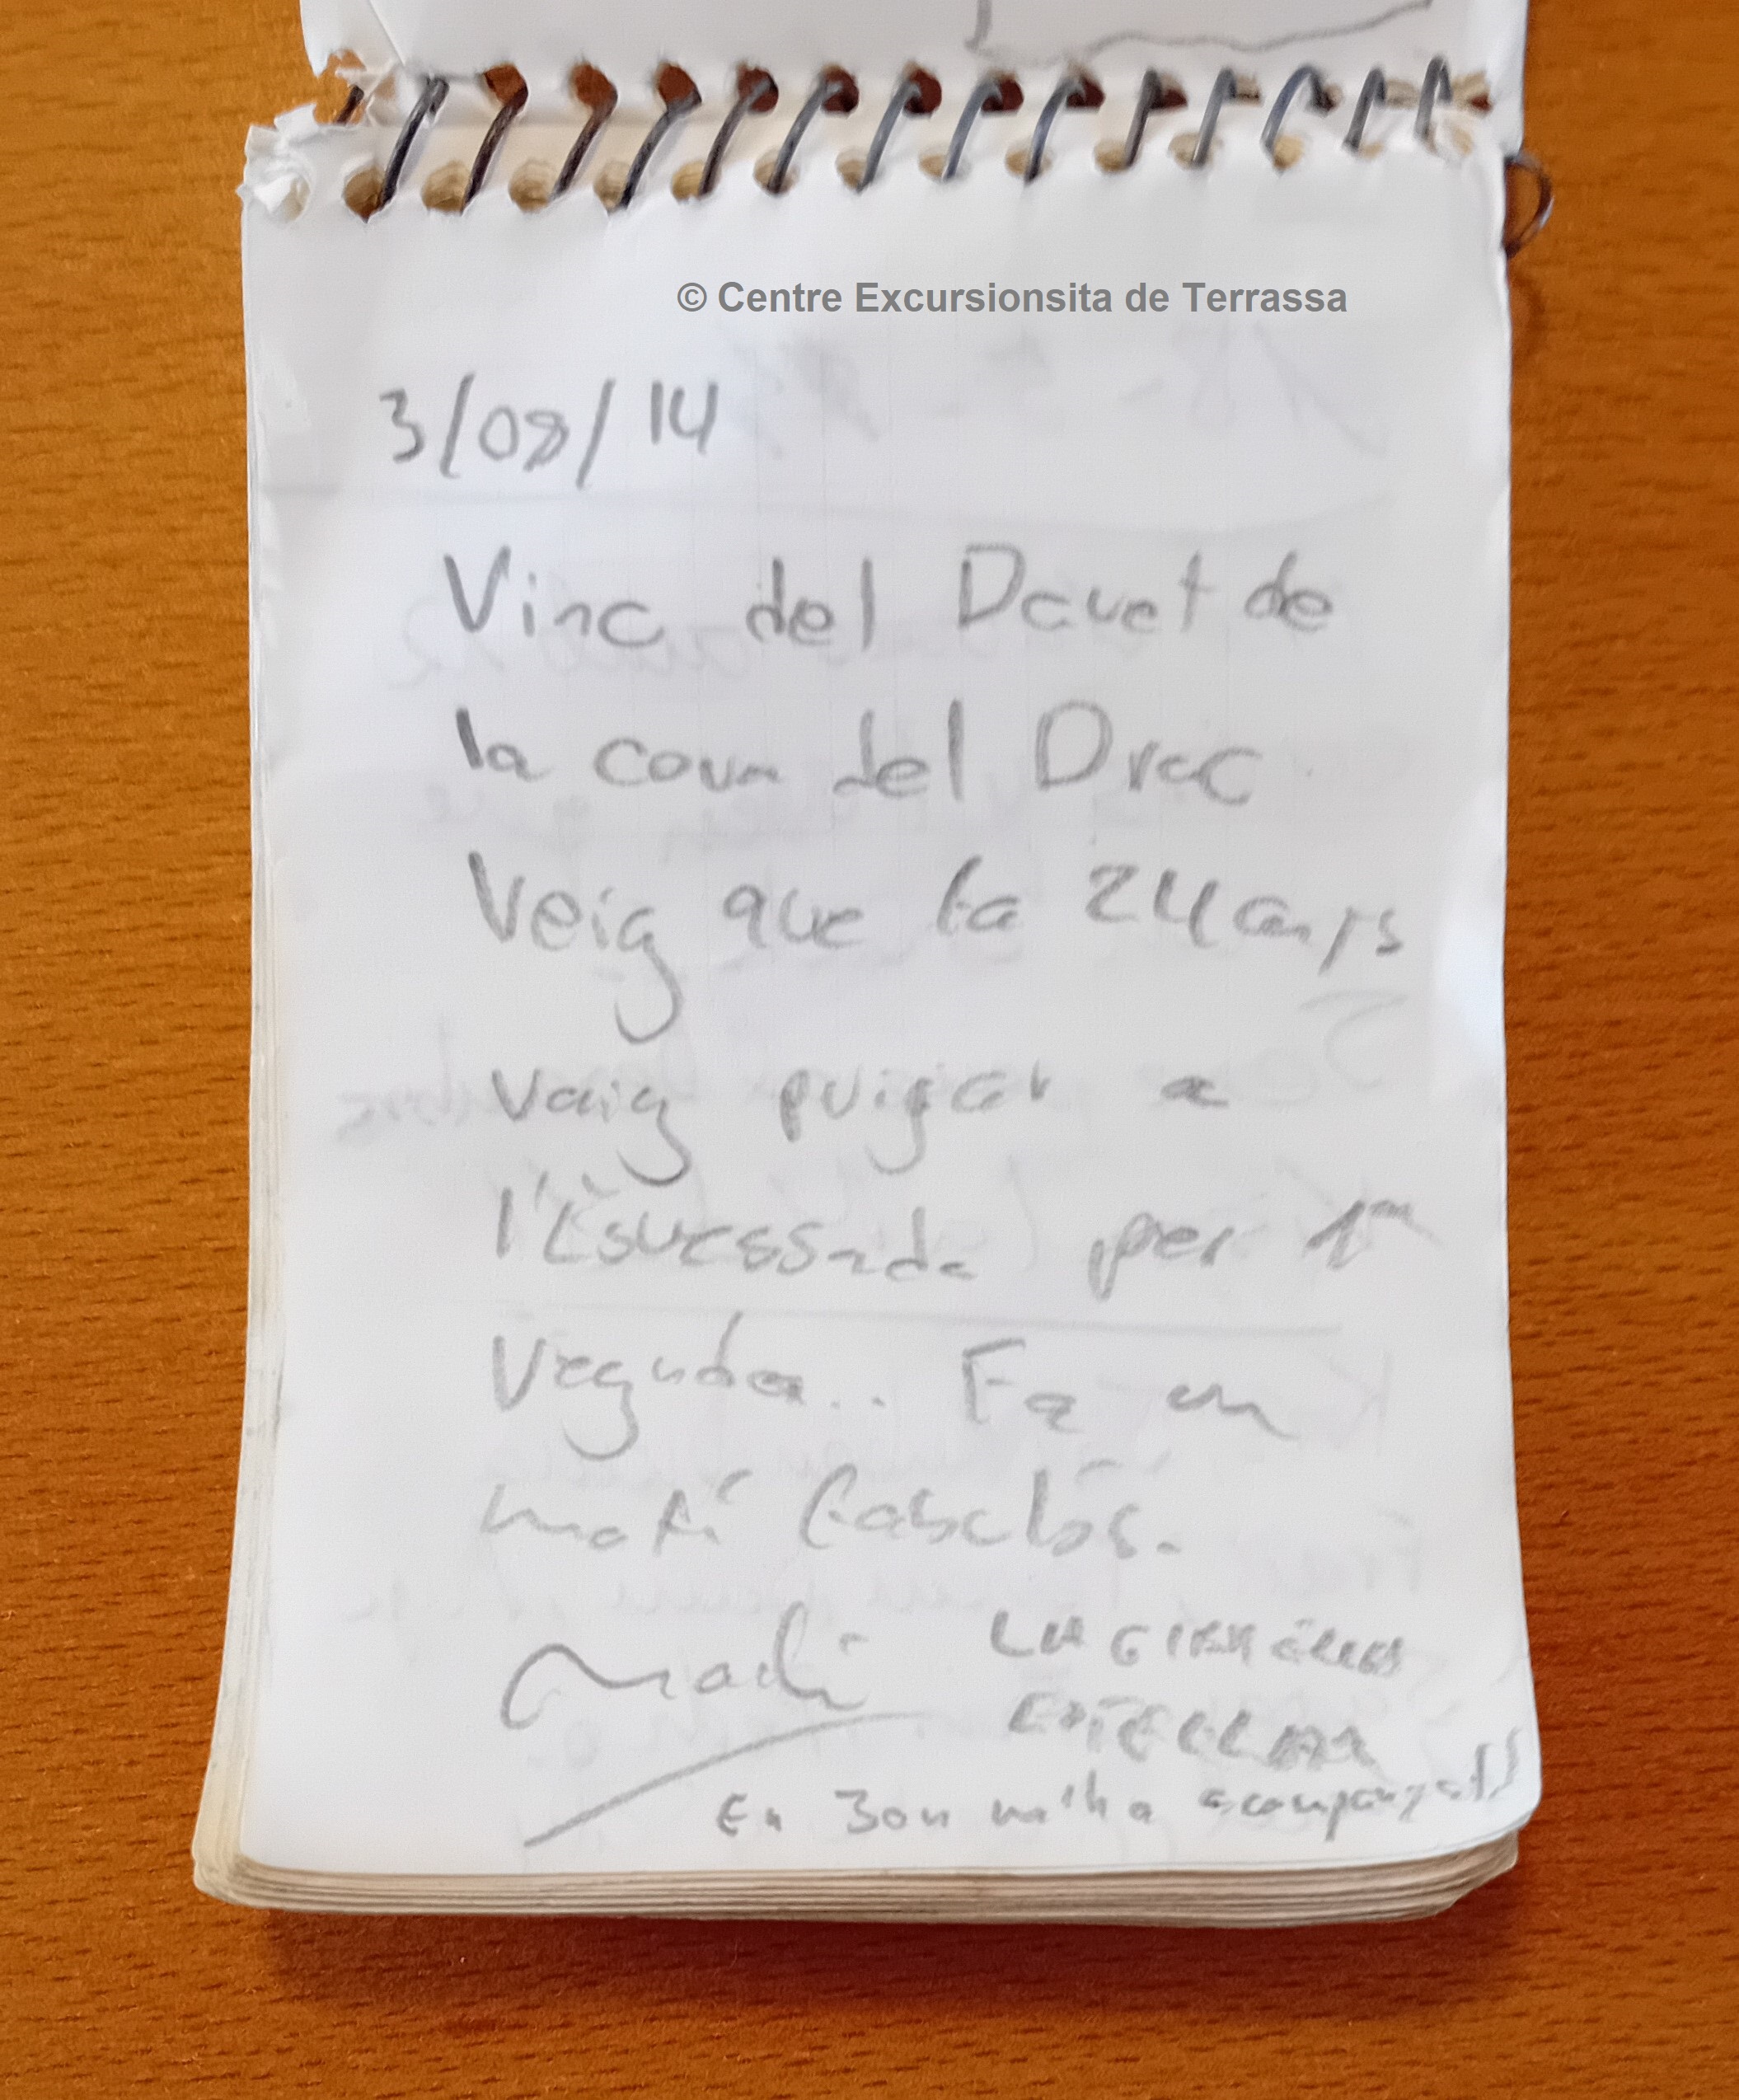 © Centre Excursionsita de Terrassa
3/08/14
Vinc del Davet de
la cova del Drac
Veig que fa 24 anys
vaig puigar a
l'Esvessada per 1ª
Veguda.. Fa un
matí fabulós.
En 3on m'ha acompanyat!!